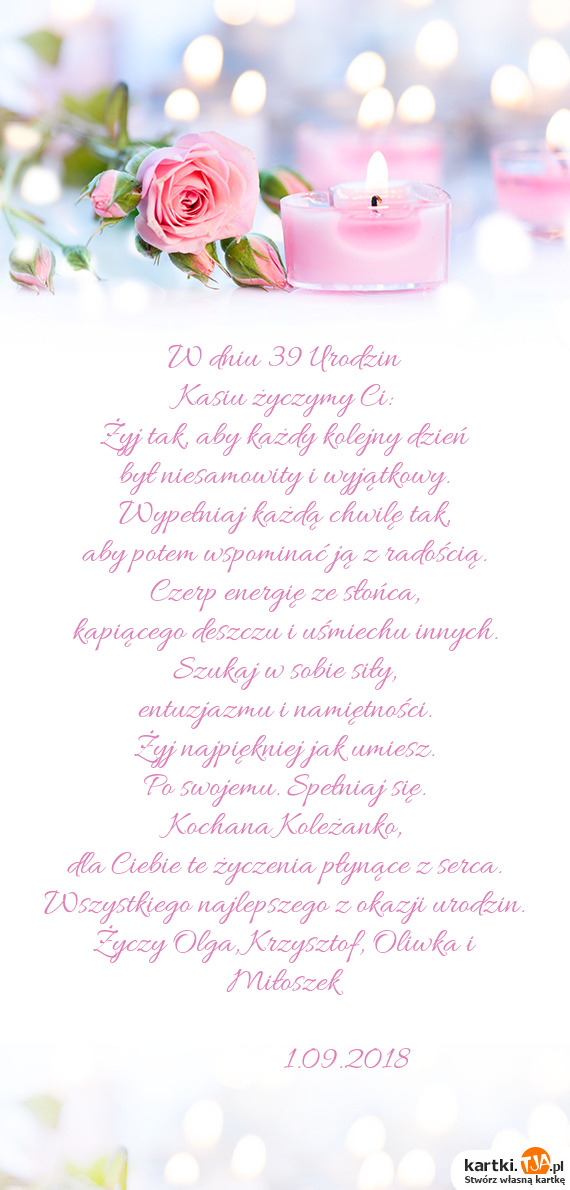 W dniu 39 Urodzin
Kasiu życzymy Ci:
Żyj tak, aby każdy kolejny dzień
był niesamowity i wyjątkowy.
Wypełniaj każdą chwilę tak,
aby potem wspominać ją z radością.
Czerp energię ze słońca,
kapiącego deszczu i uśmiechu innych.
Szukaj w sobie siły,
entuzjazmu i namiętności.
Żyj najpiękniej jak umiesz.
Po swojemu. Spełniaj się.
Kochana Koleżanko,
dla Ciebie te życzenia płynące z serca.
Wszystkiego najlepszego z okazji urodzin.
Życzy Olga, Krzysztof, Oliwka i
Miłoszek
1.09.2018
kartki.TJA.pl
Stwórz własną kartkę